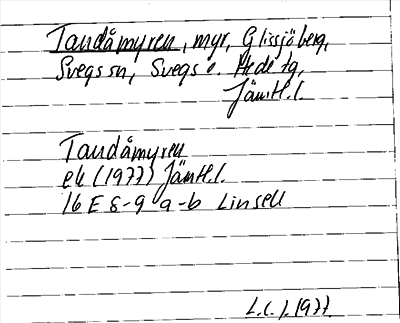 Tandåmyren, myr, Glissjöberg,
Svegs sn, Svegs o. Hede tg,
Jämtl. l.
Tandåmyren
ek (1977) Jämtl. l.
16 E 8-9 a-b Linsell
L.C.J. 1977.